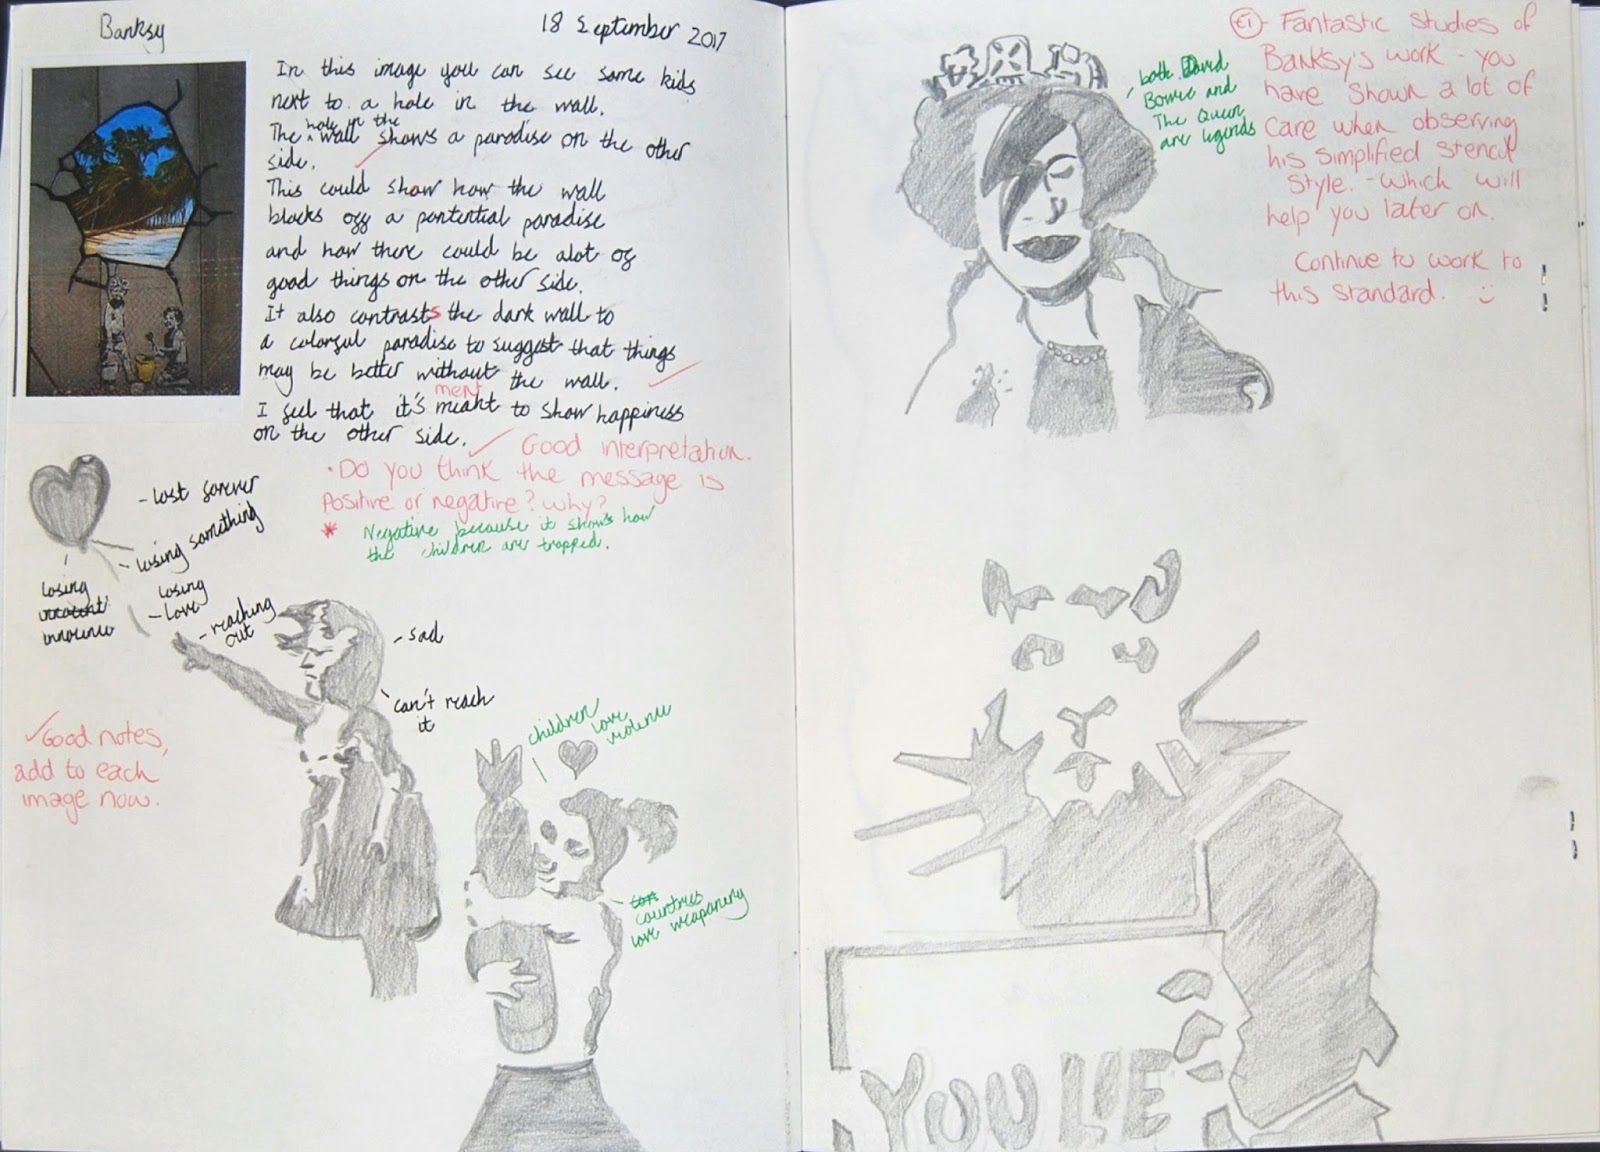 Banksy
18 September 2017
In this image you can see some kids
next to a hole in the wall.
The hole in the wall shows a paradise on the other
side.
This could show how the wall
blocks off a pontential paradise
and how there could be alot of
good things on the other side.
It also contrasts the dark wall to
a colorful paradise to suggest that things
may be better without the wall.
ment
I feel that it's meant to show happiness
on the other side.
Good interpretation.
• Do you think the message is
Positive or negative? why?
* Negative because it shows how
the children are trapped.
- lost forever
- losing something
losing
innocence
losing
- love
- reaching
out
- sad
can't reach
it
✓Good notes,
add to each
image now.
children
love
violence
countries
love weaponery
both David
Bowie and
The Queen
are legends
E1 - Fantastic studies of
Banksy's work - you
have shown a lot of
care when observing
his simplified stencil
style. - which will
help you later on.
Continue to work to
this standard.
YOU LIE